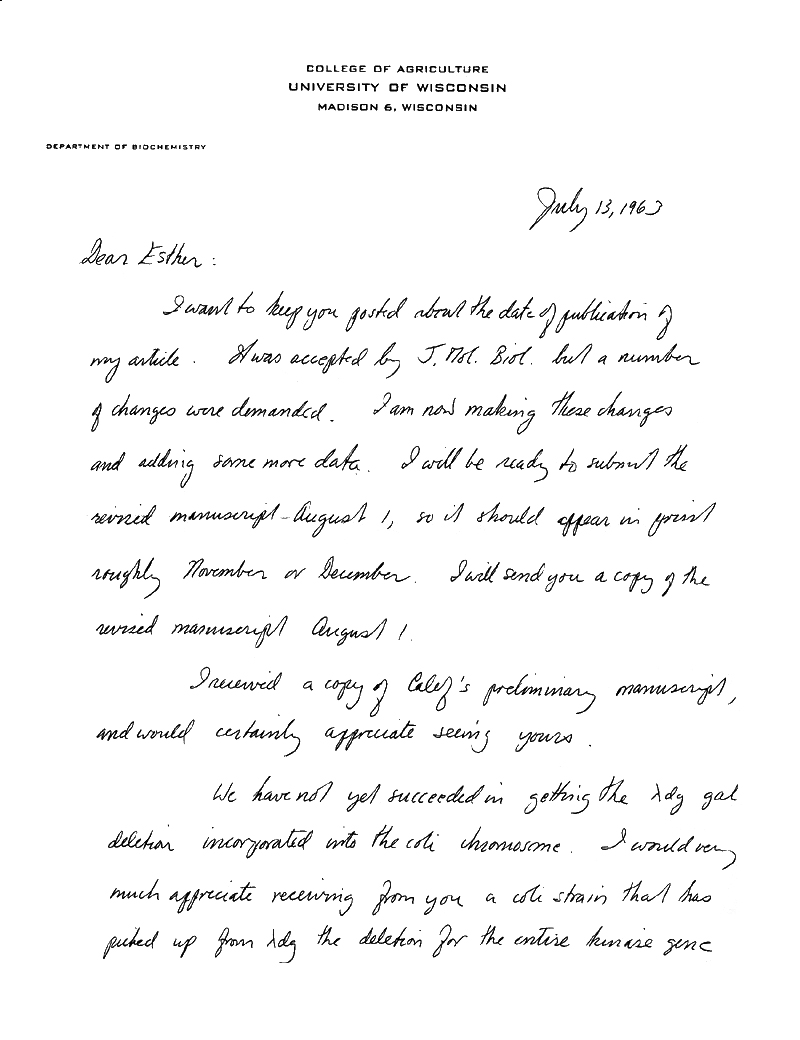 COLLEGE OF AGRICULTURE
UNIVERSITY OF WISCONSIN
MADISON 6, WISCONSIN
DEPARTMENT OF BIOCHEMISTRY
July 13, 1963
Dear Esther:
I want to keep you posted about the date of publication of
my article. It was accepted by J. Mol. Biol. but a number
of changes were demanded. I am now making these changes
and adding some more data. I will be ready to submit the
revised manuscript - August 1, so it should appear in print
roughly November or December. I will send you a copy of the
revised manuscript August 1.
I received a copy of Calef's preliminary manuscript,
and would certainly appreciate seeing yours.
We have not yet succeeded in getting the λdg gal
deletion incorporated into the coli chromosome. I would very
much appreciate receiving from you a coli strain that has
picked up from λdg the deletion for the entire kinase gene